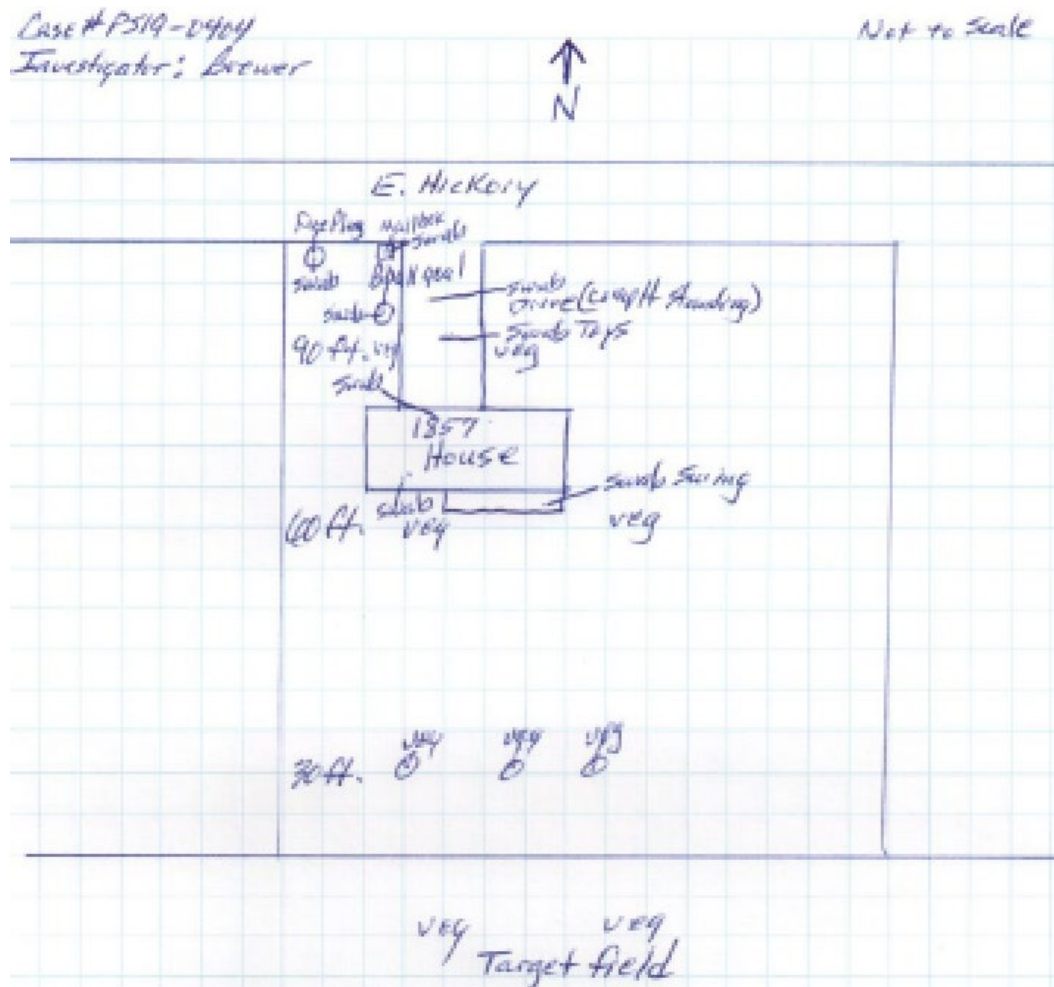 Case # PS19-0404
Investigator: Brewer
Not to Scale
N
E. Hickory
Fire Plug
Mailbox
swab
swab
BBall goal
swab
swab
Drive (Complt Standing)
swab Toys
90 ft. veg
veg
swab
1857
House
swab swing
swab
60 ft. veg
veg
veg
veg
veg
30 ft.
veg
veg
Target field